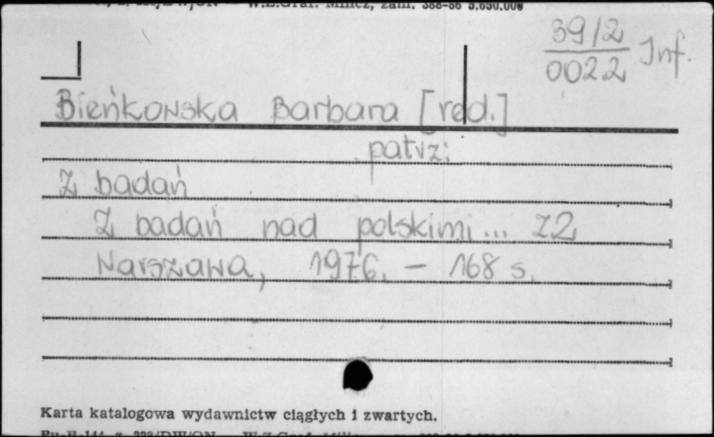 W.Z.Graf. Mincz, zam. 388-86 5.650.000
39/2
0022 Inf.
Bieńkowska Barbara [red.]
patrz:
Z badań
Z badań nad polskimi... z2
Warszawa, 1976. - 168 s.
Karta katalogowa wydawnictw ciągłych i zwartych.